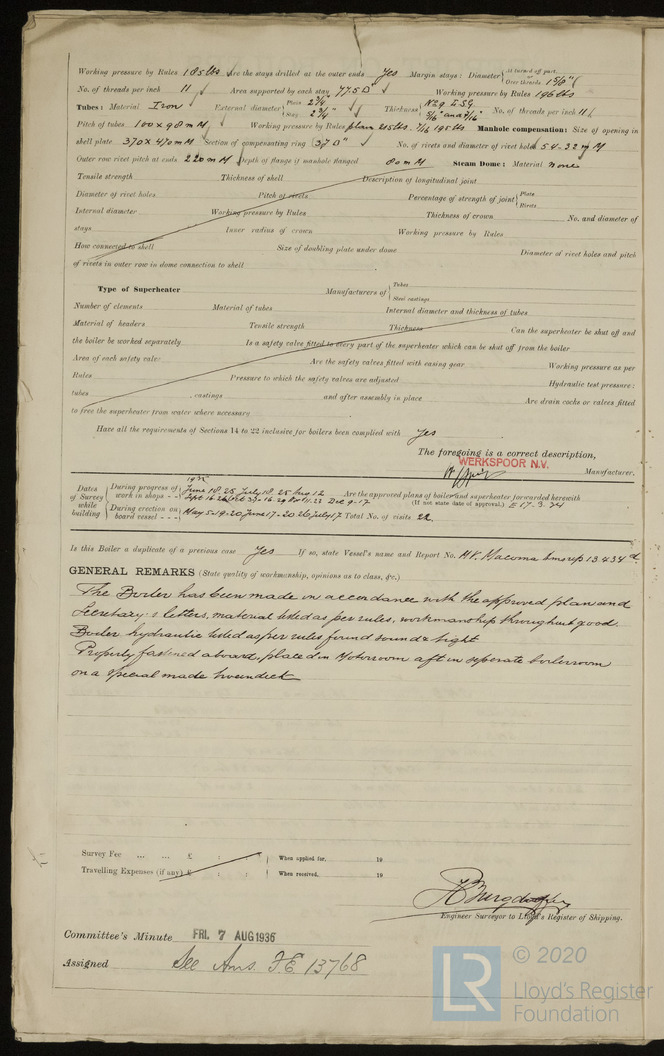 Working pressure by Rules 185 lbs Are the stays drilled at the outer ends Yes Margin stays: Diameter { At turned off part, Over threads 1 5/8"
No. of threads per inch 11 Area supported by each stay 77.5 □" Working pressure by Rules 196 lbs
Tubes: Material Iron External diameter { Plain 2 3/4" Stay 2 3/4" Thickness { No. of threads per inch 11
Pitch of tubes 100 x 98 m M Working pressure by Rules plain 215 lbs. 195 lbs Manhole compensation: Size of opening in
shell plate 370 x 470 m M Section of compensating ring No. of rivets and diameter of rivet holes 54-32 m M
Outer row rivet pitch at ends 220 m M Depth of flange if manhole flanged 80 m M Steam Dome: Material none
Tensile strength Thickness of shell Description of longitudinal joint
Diameter of rivet holes Pitch of rivets Percentage of strength of joint { Plate Rivets
Internal diameter Working pressure by Rules Thickness of crown No. and diameter of
stays Inner radius of crown Working pressure by Rules
How connected to shell Size of doubling plate under dome Diameter of rivet holes and pitch
of rivets in outer row in dome connection to shell
Type of Superheater Manufacturers of { Tubes Steel castings
Number of elements Material of tubes Internal diameter and thickness of tubes
Material of headers Tensile strength Thickness Can the superheater be shut off and
the boiler be worked separately Is a safety valve fitted to every part of the superheater which can be shut off from the boiler
Area of each safety valve Are the safety valves fitted with easing gear Working pressure as per
Rules Pressure to which the safety valves are adjusted Hydraulic test pressure:
tubes castings and after assembly in place Are drain cocks or valves fitted
to free the superheater from water where necessary
Have all the requirements of Sections 14 to 22 inclusive for boilers been complied with Yes
The foregoing is a correct description,
WERKSPOOR N.V.
Manufacturer.
Dates of Survey while building
During progress of work in shops - - Are the approved plans of boiler and superheater forwarded herewith
(If not state date of approval.) E 17.3.34
During erection on board vessel - - - May 5-19-20 June 17-20 26 July 17 Total No. of visits 22
Is this Boiler a duplicate of a previous case Yes If so, state Vessel's name and Report No. M.V. Macoma 13434
GENERAL REMARKS (State quality of workmanship, opinions as to class, &c.)
The Boiler has been made in accordance with the approved plan and
Secretary's letters, material tested as per rules, workmanship throughout good.
Boiler hydraulic tested as per rules found sound & tight
Properly fastened aboard, placed in Motorroom aft in seperate boilerroom
on a special made tweendeck
Survey Fee ... ... £ : : When applied for, 19
Travelling Expenses (if any) £ : : When received, 19
Engineer Surveyor to Lloyd's Register of Shipping.
Committee's Minute FRI. 7 AUG 1936
Assigned See Ams. F.E. 13768
LR
© 2020
Lloyd's Register
Foundation